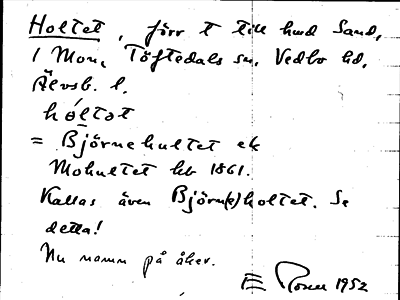 Holtet, förr t till hmd Sand,
1 Mon, Töftedals sn, Vedbo hd,
Älvsb. l.
hóltət
= Björnehultet ek
Mohultet hb 1861.
Kallas även Björn(e)holtet. Se
detta!
Nu namn på åker.
Rosen 1952